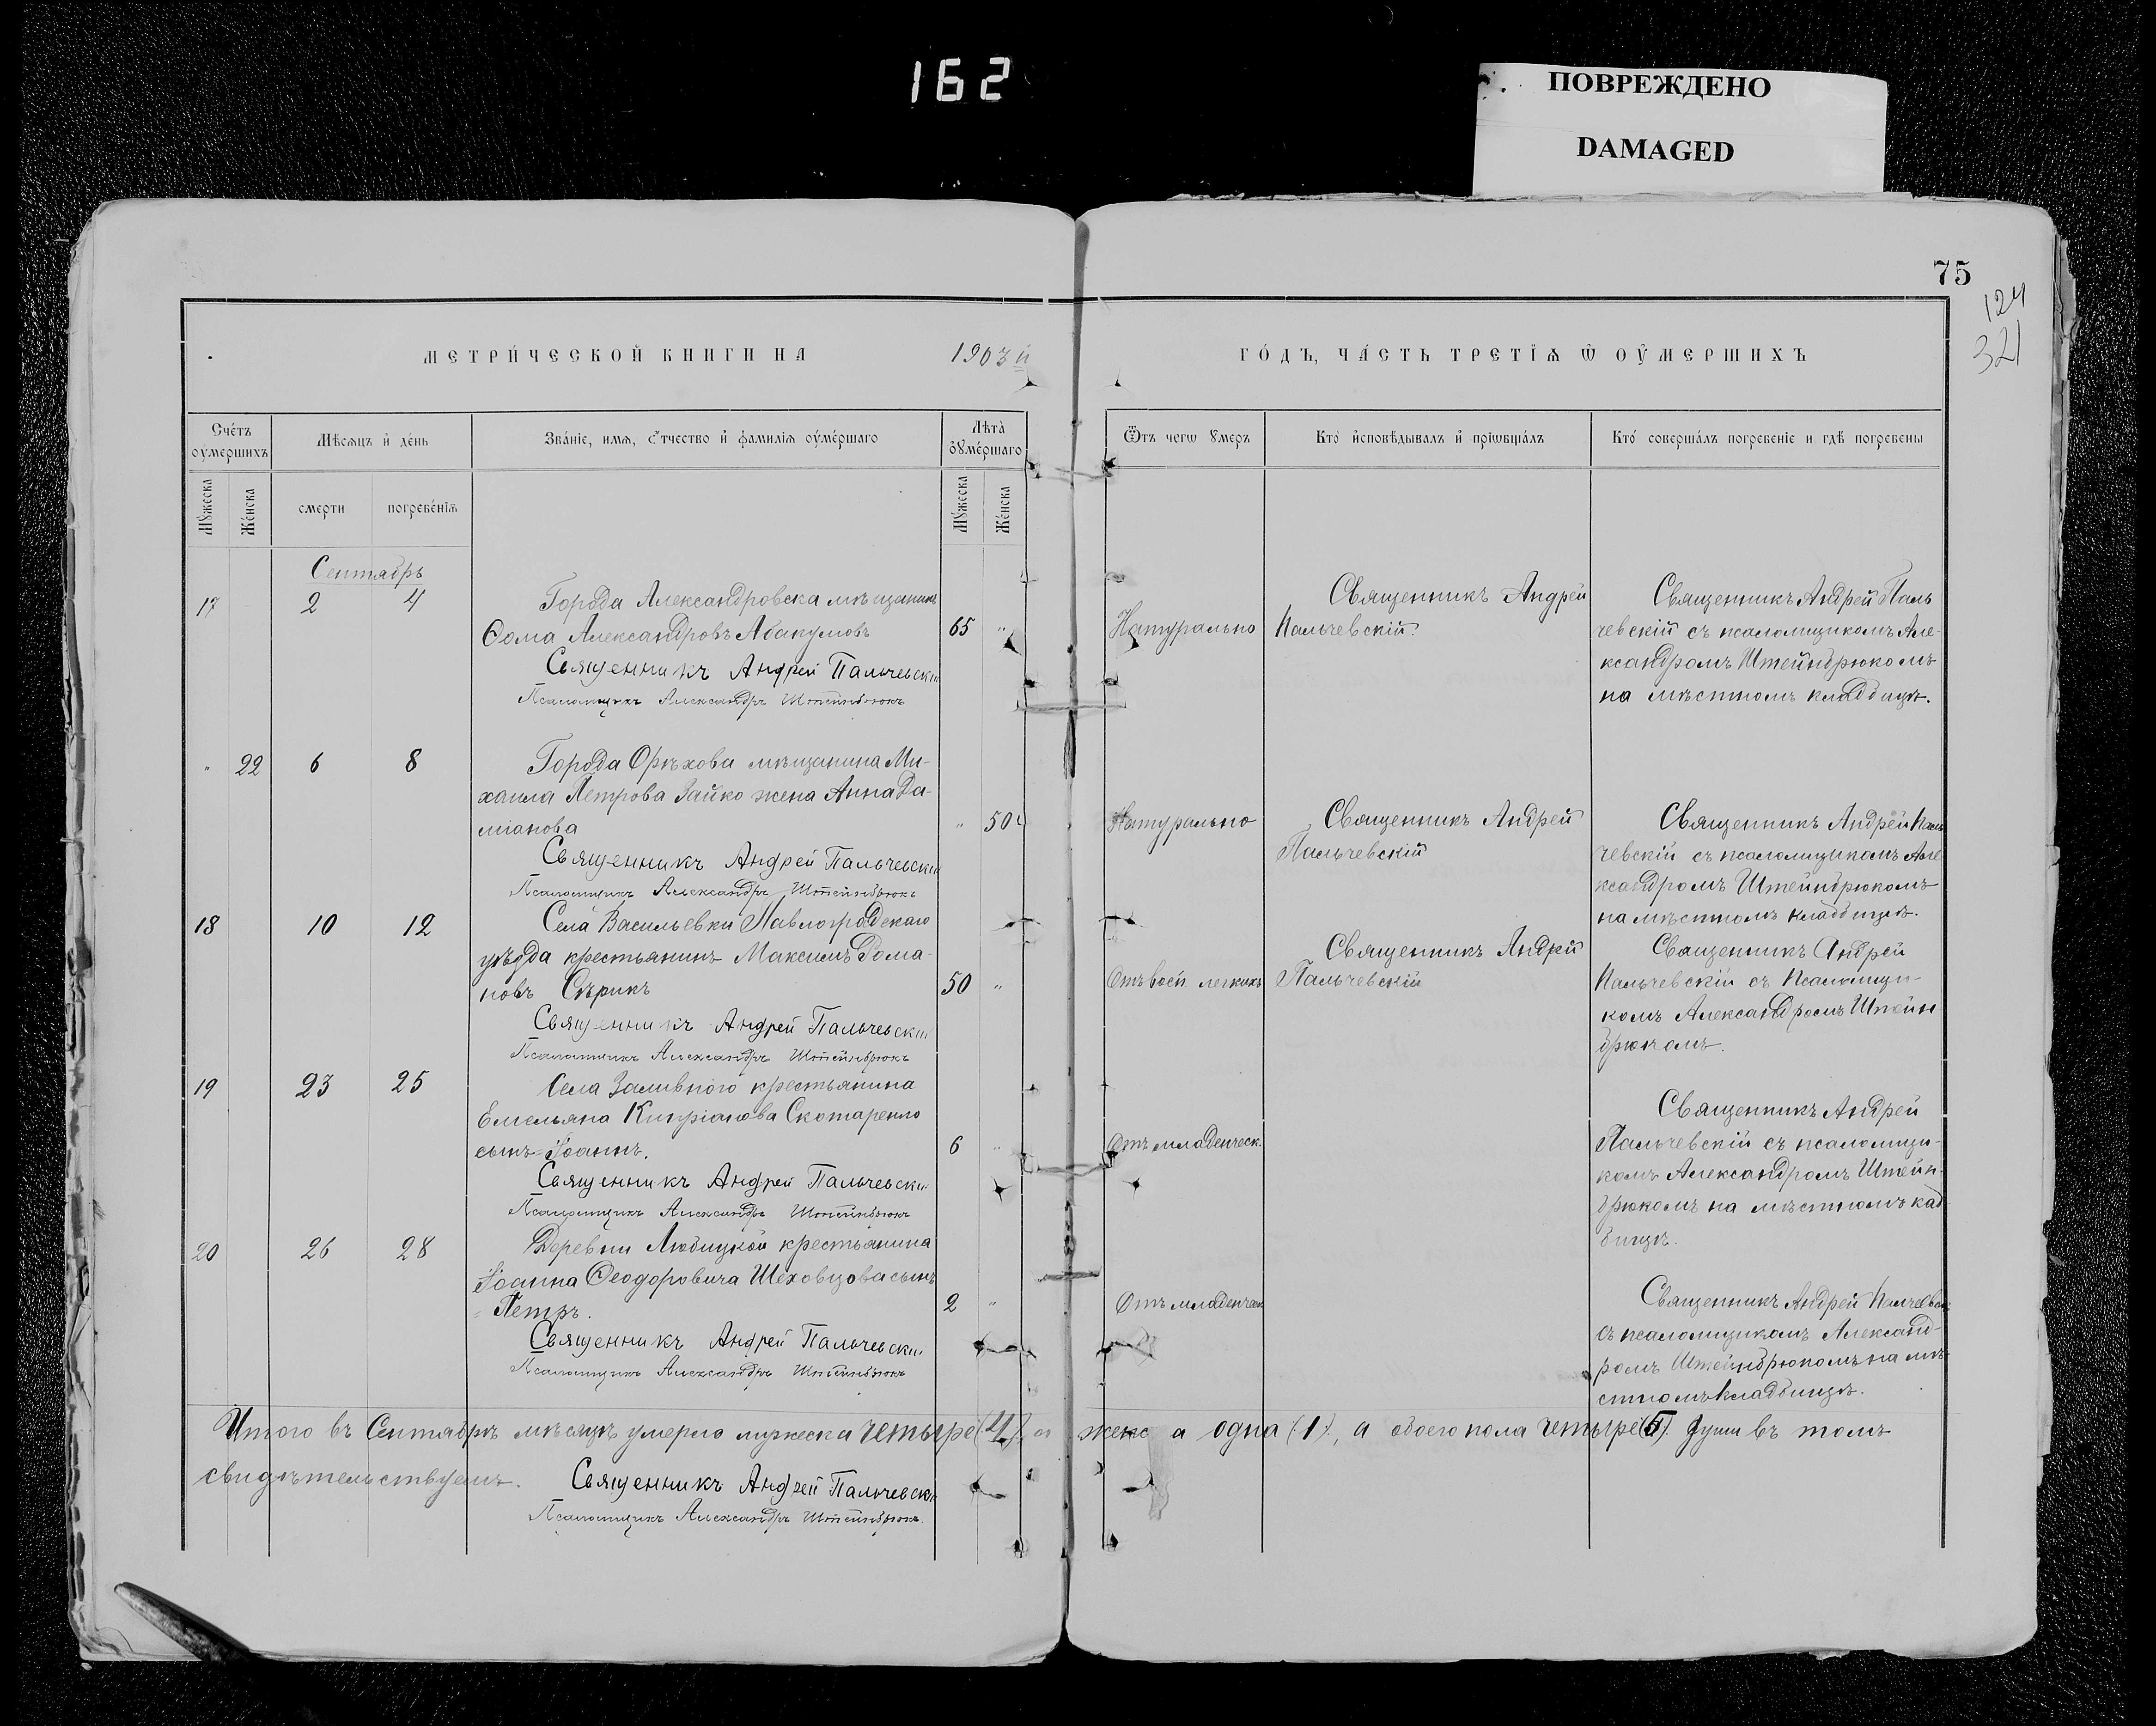 162
ПОВРЕЖДЕНО
DAMAGED
75
124
321
МЕТРИ́ЧЕСКОЙ КНИГИ НА 1903 й
ГО́ДЪ, ЧА́СТЬ ТРЕТІѦ Ѿ ОУ҆МЕРШИХЪ
Сче́тъ оу҆ме́ршихъ
Мѣсѧцъ и҆ де́нь
Зва́ніе, имѧ, ѻ҆́тчество и҆ фамилїѧ оу҆ме́ршаго
Лѣта̀ оу҆ме́ршаго
Ѿтъ чегѡ ᲂумеръ
Кто̀ и҆сповѣ́дывалъ и҆ прїѡбща́лъ
Кто́ соверша́лъ погребеніе и гдѣ̀ погребены
Мꙋ́жеска
Же́нска
смерти
погребе́нїѧ
Мꙋ́жеска
Же́нска
Сентябрь
17 2 4
Города Александровска мѣщанинъ
Ѳома Александровъ Абакумовъ 65 „
Священникъ Андрей Пальчевскій
Псаломщикъ Александръ Штейнбрюкъ
Натурально
Священникъ Андрей
Пальчевскій.
Священникъ Андрей Паль
чевскій съ псаломщикомъ Але-
ксандромъ Штейнбрюкомъ
на мѣстномъ кладбищѣ.
„ 22 6 8
Города Орѣхова мѣщанина Ми-
хаила Петрова Зайко жена Анна Да-
міанова „ 50
Священникъ Андрей Пальчевскій
Псаломщикъ Александръ Штейнбрюкъ
Натурально
Священникъ Андрей
Пальчевскій
Священникъ Андрей Паль
чевскій съ псаломщикомъ Але
ксандромъ Штейнбрюкомъ
на мѣстномъ кладбищѣ.
18 10 12
Села Васильевки Павлоградскаго
уѣзда крестьянинъ Максимъ Рома-
новъ Сѣрикъ 50 „
Священникъ Андрей Пальчевскій
Псаломщикъ Александръ Штейнбрюкъ
Отъ восп. легкихъ
Священникъ Андрей
Пальчевскій
Священникъ Андрей
Пальчевскій съ Псаломщи-
комъ Александромъ Штейн
брюкомъ.
19 23 25
Села Заливного крестьянина
Емельяна Кипріанова Скотаренко
сынъ Іоаннъ. 6 „
Священникъ Андрей Пальчевскій
Псаломщикъ Александръ Штейнбрюкъ
Отъ младенческ.
Священникъ Андрей
Пальчевскій съ псаломщи-
комъ Александромъ Штейн-
брюкомъ на мѣстномъ кад
бищѣ.
20 26 28
Деревни Любицкой крестьянина
Іоанна Ѳеодоровича Шеховцова сынъ
Петръ. 2 „
Священникъ Андрей Пальчевскій
Псаломщикъ Александръ Штейнбрюкъ
Отъ младенческ
Священникъ Андрей Пальчевскі
съ псаломщикомъ Александ-
ромъ Штейнбрюкомъ на мѣ-
стномъ кладбищѣ.
Итого въ Сентябрѣ мѣсяцѣ умерло мужеска четыре (4), а женс а одна (1), а обоего пола четыре (5). души въ томъ
свидѣтельствуемъ. Священникъ Андрей Пальчевскій
Псаломщикъ Александръ Штейнбрюкъ.